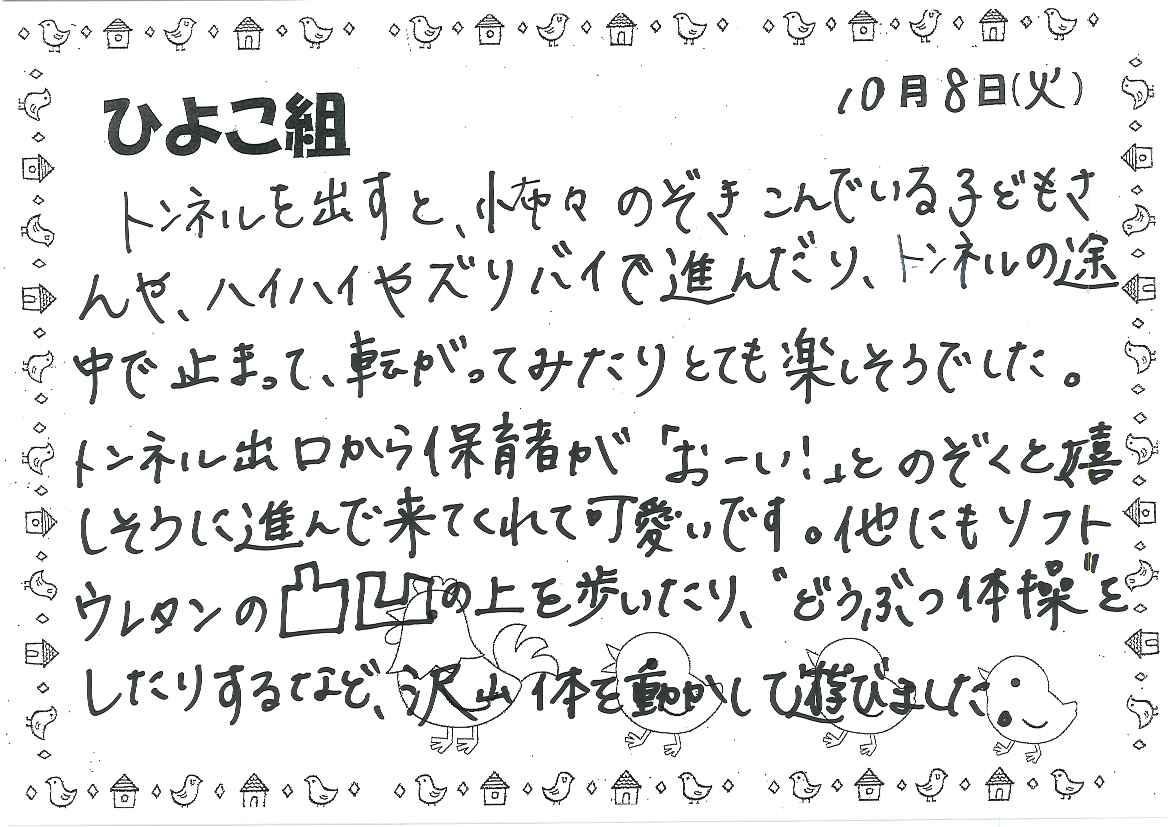 10月8日(火)
ひよこ組
トンネルを出すと、怖々のぞきこんでいる子どもさ
んや、ハイハイやズリバイで進んだり、トンネルの途
中で止まって、転がってみたりとても楽しそうでした。
トンネル出口から保育者が「おーい!」とのぞくと嬉
しそうに進んで来てくれて可愛いです。他にもソフト
ウレタンの凸凹の上を歩いたり、"どうぶつ体操"を
したりするなど、沢山体を動かして遊びました。